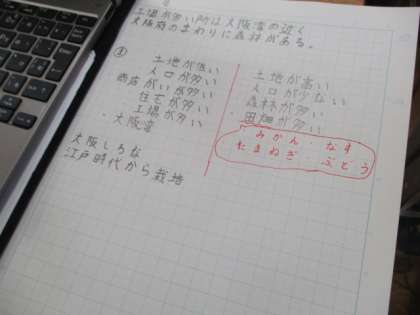 工場が多い所は大阪湾の近く
大阪府のまわりに森林がある。
土地が低い
人口が多い
商店がいが多い
住宅が多い
工場が多い
・大阪湾
土地が高い
人口が少ない
森林が多い
・田畑が多い
みかん・なす
たまねぎ・ぶどう
大阪しろな
江戸時代から栽培